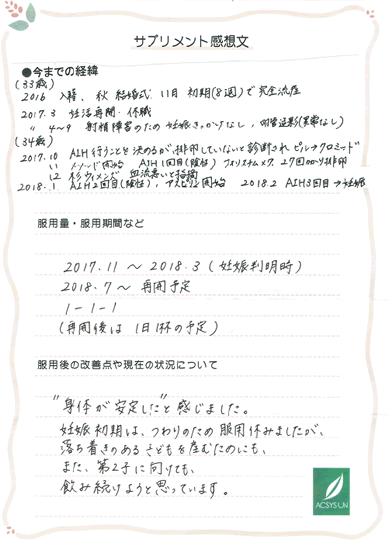 サプリメント感想文
●今までの経緯
(33歳)
2016 入籍、秋 結婚式 11月 初期(8週)で完全流産
2017.3 妊活再開・休職
〃 4〜9 射精障害のため妊娠きっかけなし、
(34歳)
2017.10 AIH行うことを決めるが排卵していないと診断され ピル→クロミッド
11 開始 AIH1回目(陰性) 27回
12 杉ウィメンズ 血流悪いと指摘
2018.1 AIH2回目(陰性)、アスピリン開始 2018.2 AIH3回目→妊娠
服用量・服用期間など
2017.11 〜 2018.3 (妊娠判明時)
2018.7〜 再開予定
1-1-1
(再開後は 1日1杯の予定)
服用後の改善点や現在の状況について
"身体が安定した"と感じました。
妊娠初期は、つわりのため服用休みましたが、
落ち着きのある子どもを産むためにも、
また、第2子に向けても、
飲み続けようと思っています。
ACSYSUN